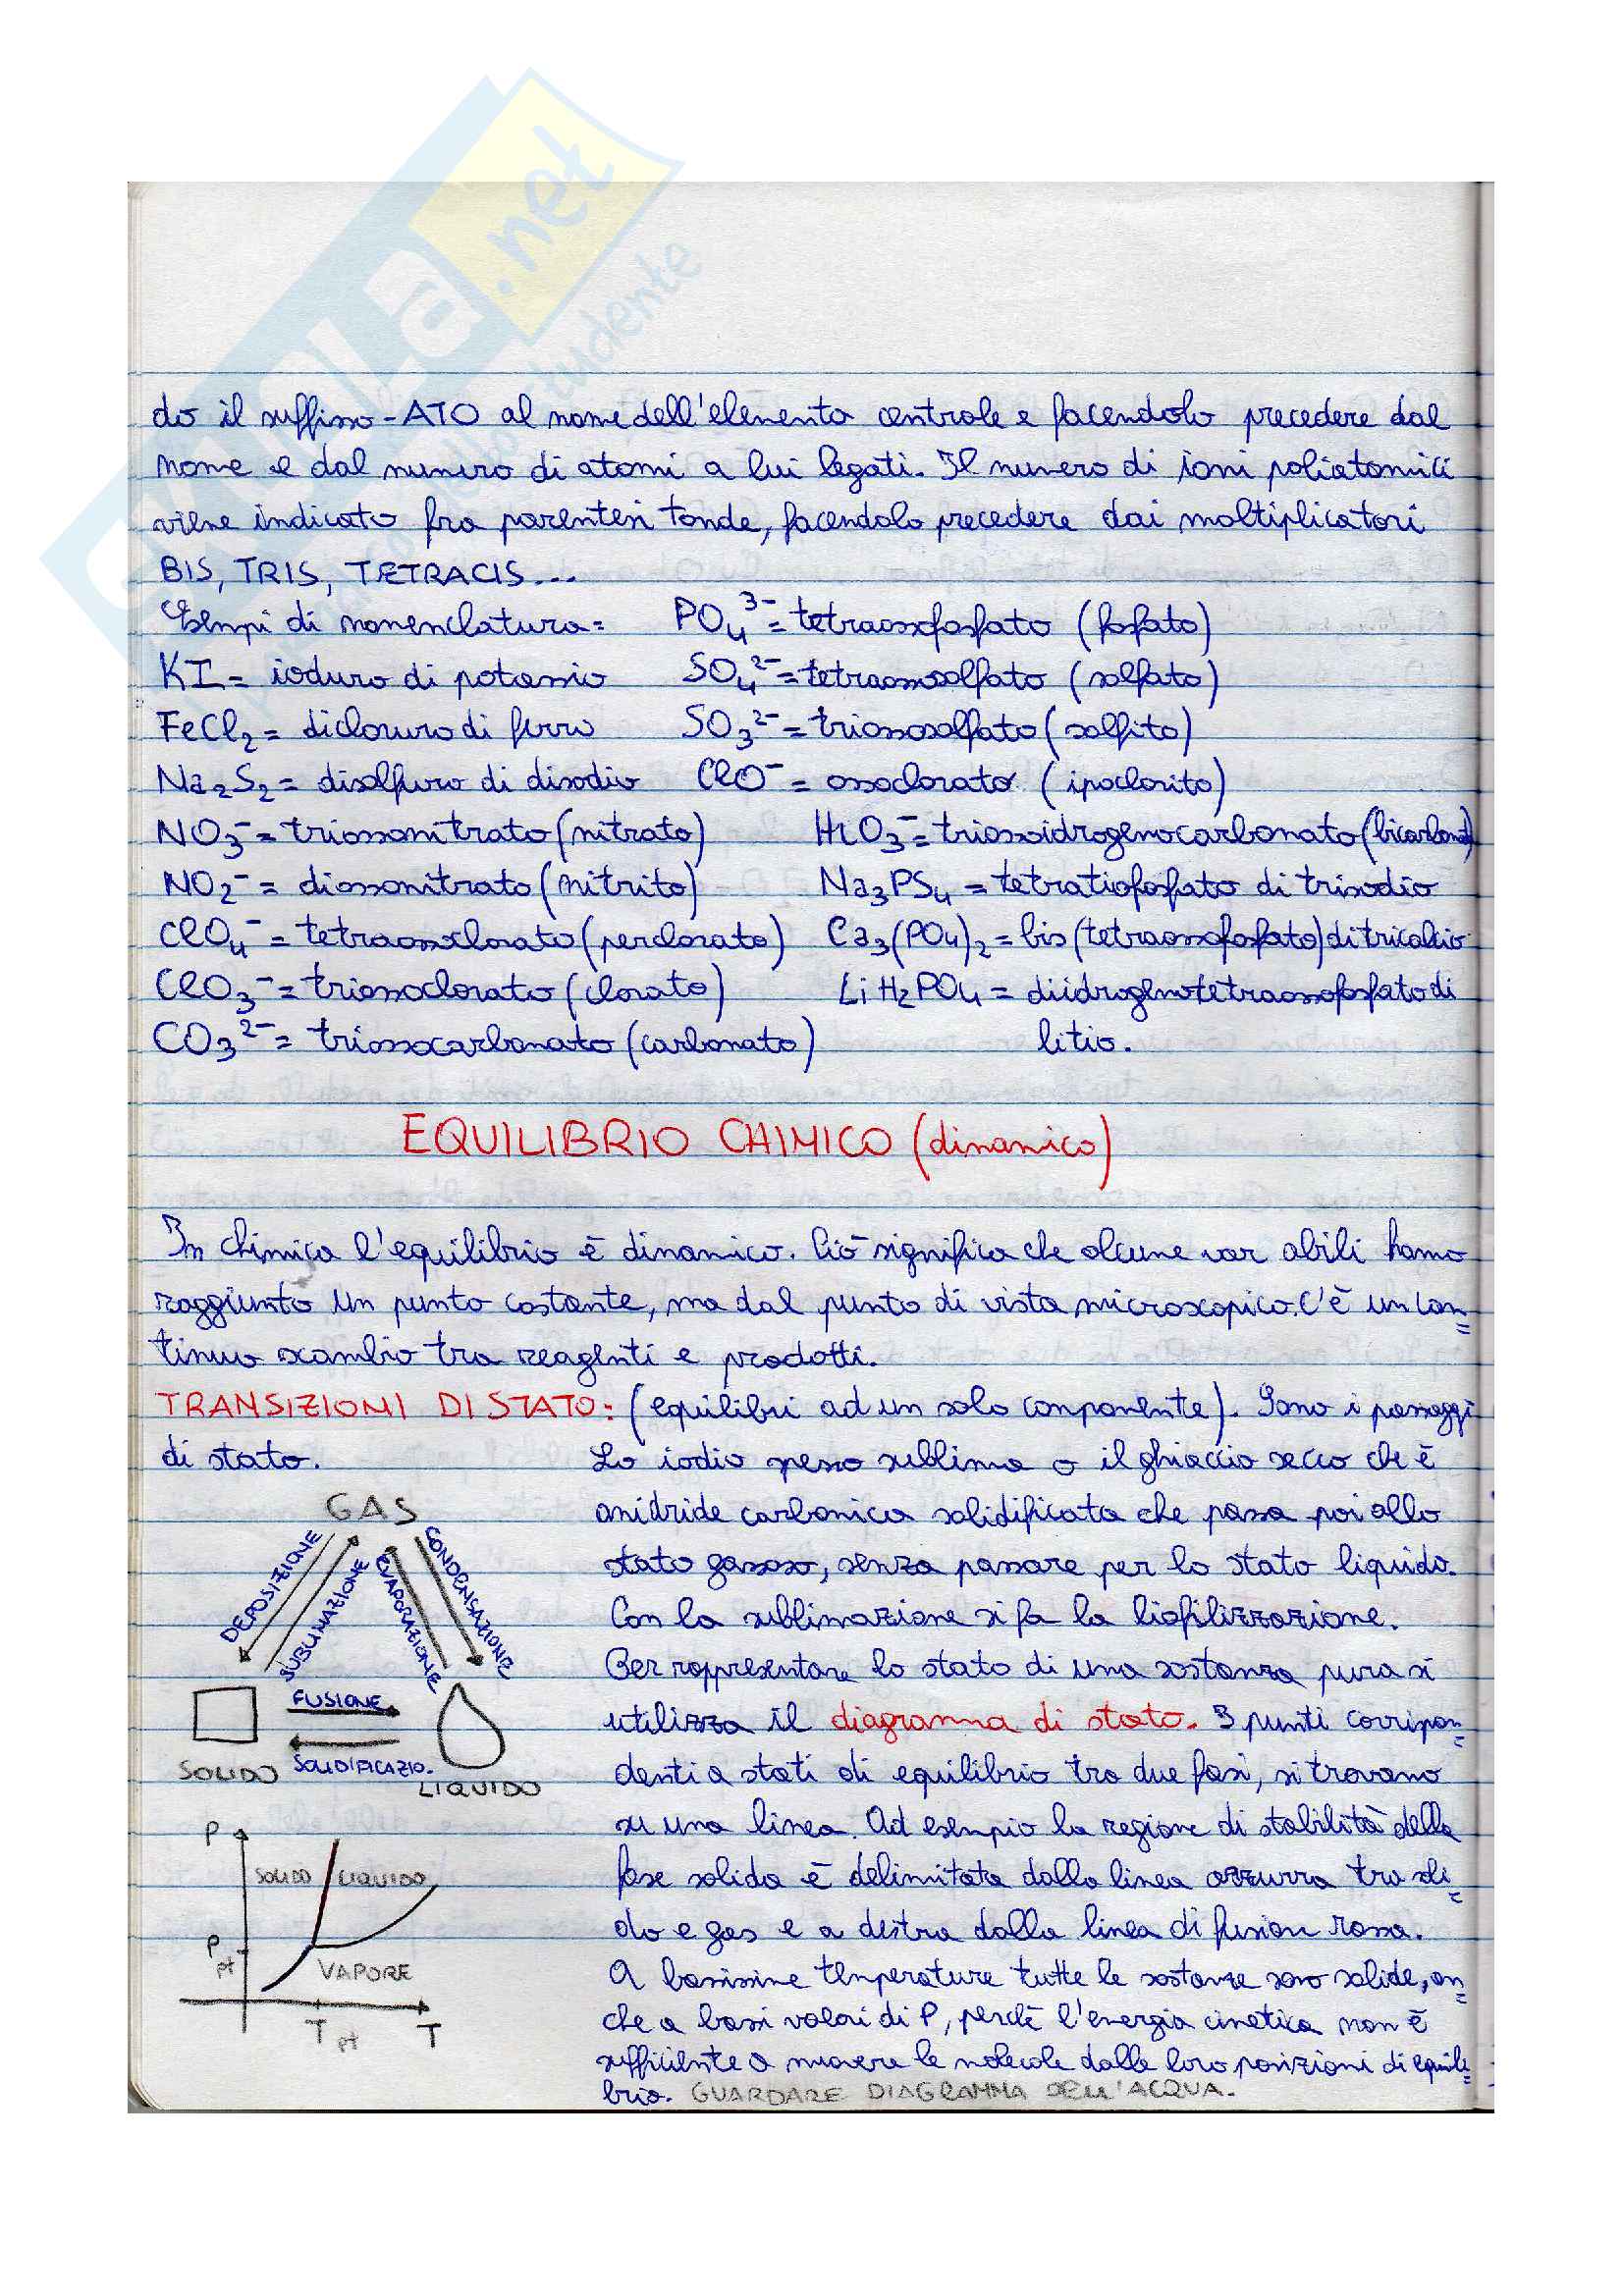 do il suffisso -ATO al nome dell'elemento centrale e facendolo precedere dal
nome e dal numero di atomi a lui legati. Il numero di ioni poliatomici
viene indicato fra parentesi tonde, facendolo precedere dai moltiplicatori
BIS, TRIS, TETRACIS...
Esempi di nomenclatura=
KI = ioduro di potassio
FeCl₂ = dicloruro di ferro
Na₂S₂ = disolfuro di disodio
NO₃⁻ = triossonitrato (nitrato)
NO₂⁻ = diossonitrato (nitrito)
ClO₄⁻ = tetraossoclorato (perclorato)
ClO₃⁻ = triossoclorato (clorato)
CO₃²⁻ = triossocarbonato (carbonato)
PO₄³⁻ = tetraossofosfato (fosfato)
SO₄²⁻ = tetraossosolfato (solfato)
SO₃²⁻ = triossosolfato (solfito)
ClO⁻ = ossoclorato (ipoclorito)
HCO₃⁻ = triossoidrogenocarbonato (bicarbonato)
Na₃PS₄ = tetratiofosfato di trisodio
Ca₃(PO₄)₂ = bis(tetraossofosfato) di tricalcio
LiH₂PO₄ = diidrogenotetraossofosfato di
litio.
EQUILIBRIO CHIMICO (dinamico)
In chimica l'equilibrio è dinamico. Ciò significa che alcune var abili hanno
raggiunto un punto costante, ma dal punto di vista microscopico. C'è un con=
tinuo scambio tra reagenti e prodotti.
TRANSIZIONI DI STATO: (equilibri ad un solo componente). Sono i passaggi
di stato.
GAS
DEPOSIZIONE
SUBLIMAZIONE
EVAPORAZIONE
CONDENSAZIONE
FUSIONE
SOLIDIFICAZIO.
SOLIDO
LIQUIDO
P
SOLIDO
LIQUIDO
P pt
VAPORE
T pt
T
Lo iodio spesso sublima o il ghiaccio secco che è
anidride carbonica solidificata che passa poi allo
stato gassoso, senza passare per lo stato liquido.
Con la sublimazione si fa la liofilizzazione.
Per rappresentare lo stato di una sostanza pura si
utilizza il diagramma di stato. I punti corrispon=
denti a stati di equilibrio tra due fasi, si trovano
su una linea. Ad esempio la regione di stabilità della
fase solida è delimitata dalla linea azzurra tra soli=
do e gas e a destra dalla linea di fusione rossa.
A bassissime temperature tutte le sostanze sono solide, an=
che a bassi valori di P, perchè l'energia cinetica non è
sufficiente a muovere le molecole dalle loro posizioni di equili=
brio. GUARDARE DIAGRAMMA DELL'ACQUA.
.net